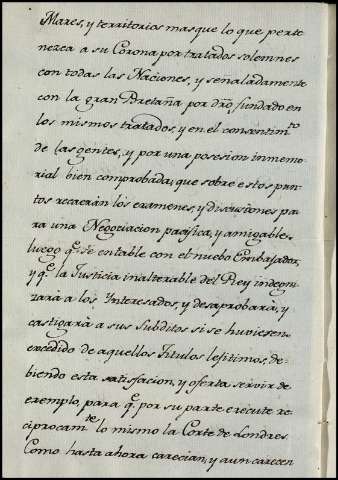 Mares, y territorios mas que lo que perte
nezca a su Corona por tratados solemnes
con todas las Naciones, y señaladamente
con la gran Bretaña por dro, fundado en
los mismos tratados, y en el consentimto
de las gentes, y por una posesion inmemo
rial bien comprobada; que sobre estos pun
tos recaerán los examenes, y discusiones pa
ra una Negociacion pacifica, y amigable,
luego qe. se entable con el nuebo Embajador,
y qe. la Justicia inalterable del Rey indegni
zará a los Interesados, y desaprobará, y
castigará a sus Subditos si se huviesen
excedido de aquellos Titulos lejitimos, de-
biendo esta satisfacion, y oferta servir de
exemplo, para qe. por su parte execute re
ciprocamte. lo mismo la Corte de Londres.
Como hasta ahora carecian, y aun carecen